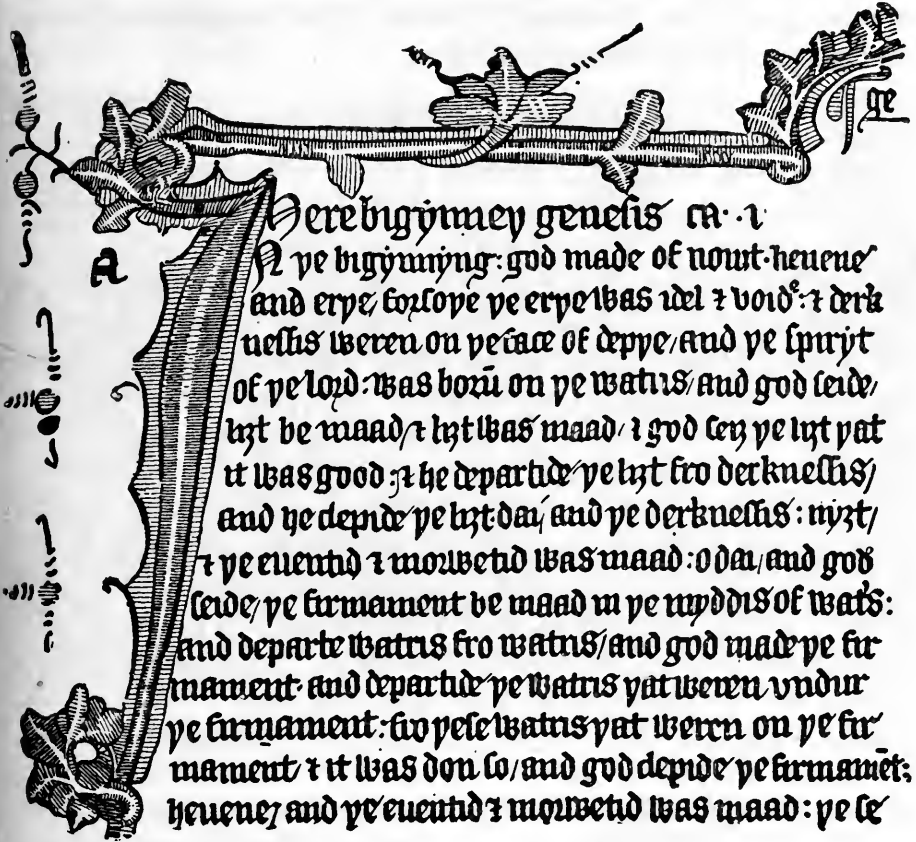 ge
Here bigynney genesis ca· ·i
a
IN ye bigynnyng: god made of nowt· heuene
and erye/ forsoye ye erye was idel ⁊ voidᵉ: ⁊ derk
nessis weren on ye face of depye/ and ye spiryt
of ye lord: was borū on ye watris/ and god seide/
lyȝt be maad/ ⁊ lyȝt was maad/ ⁊ god seȝ ye lyȝt yat
it was good: ⁊ he departide ye lyȝt fro derknessis/
and he clepide ye lyȝt dai/ and ye derknessis: nyȝt/
⁊ ye euentid ⁊ morwetid was maad: o dai/ and god
seide/ ye firmament be maad in ye myddis of wats:
and departe watris fro watris/ and god made ye fir
mament· and departide ye watris yat weren vndur
ye firmament: fro yese watris yat weren on ye fir
mament/ ⁊ it was don so/ and god clepide ye firmamēt:
heuene/ and ye euentid ⁊ morwetid was maad: ye se